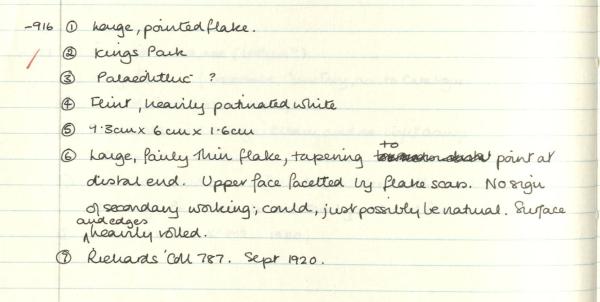 -916 ① Large, pointed flake.
② Kings Park
③ Palaeolithic ?
④ Flint, heavily patinated white
⑤ 9.3cm x 6cm x 1.6cm
⑥ Large, fairly thin flake, tapering to point at
distal end. Upper face facetted by flake scars. No sign
of secondary working; could, just possibly be natural. Surface
and edges heavily rolled.
⑦ Richards' Coll 787. Sept 1920.